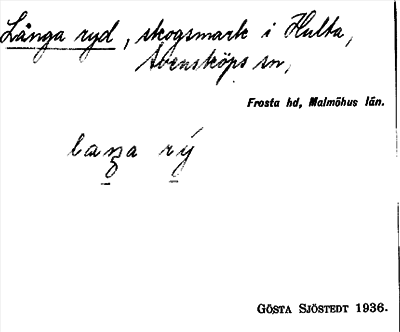 Långa ryd, skogsmark i Hulta,
Äbensköps sn,
Frosta hd, Malmöhus län.
laŋa rý
GÖSTA SJÖSTEDT 1936.